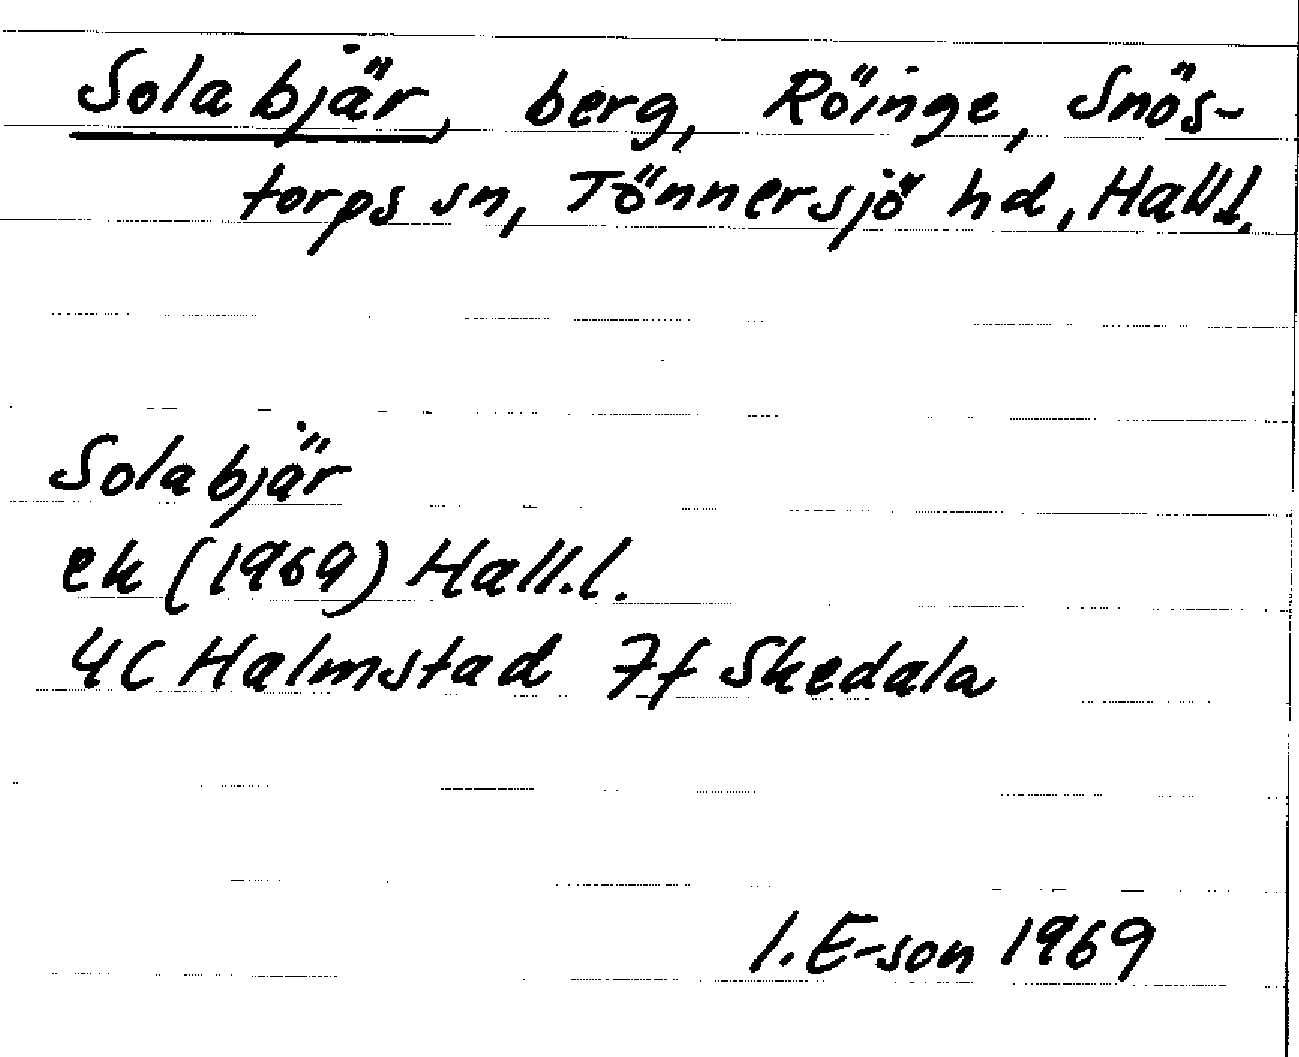 Solabjär, berg, Röinge, Snös-
torps sn, Tönnersjö hd, Hall.l.
Solabjär
ek (1969) Hall.l.
4C Halmstad 7f Skedala
I. E-son 1969